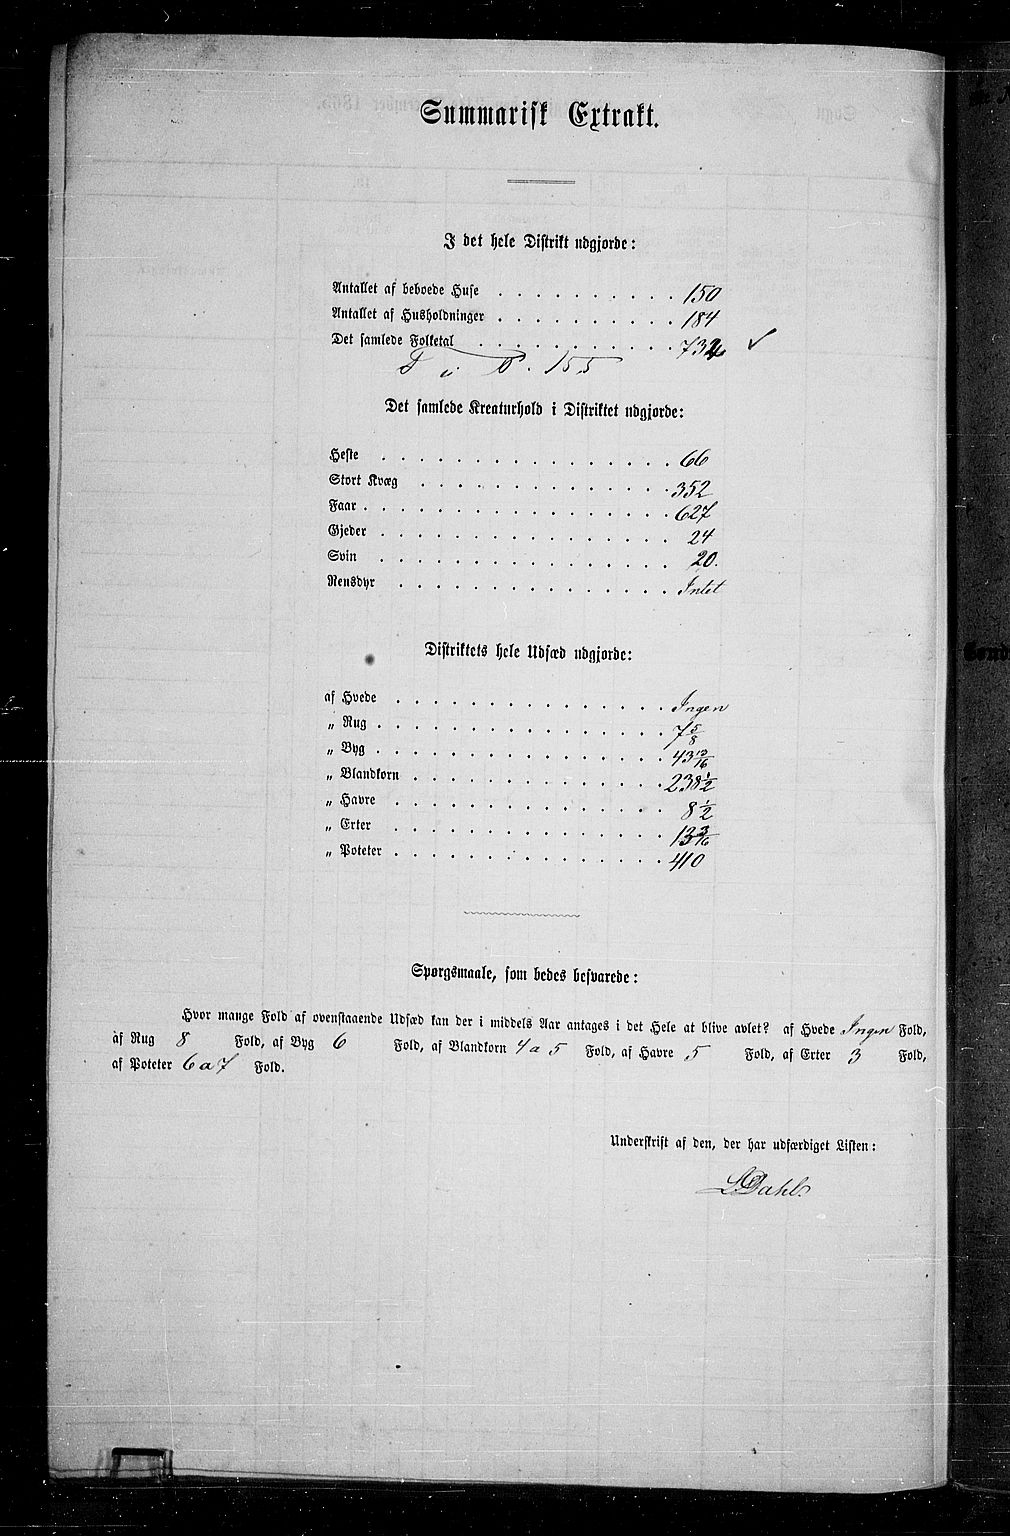 Summarisk Extrakt.
I det hele Distrikt udgjorde:
Antallet af beboede Huse . . . . . . . . . . 150
Antallet af Husholdninger . . . . . . . . . . 184
Det samlede Folketal . . . . . . . . . . . 732 ✓
T i P. 155
Det samlede Kreaturhold i Distriktet udgjorde:
Heste . . . . . . . . . . . . . . . . 66
Stort Kvæg . . . . . . . . . . . . . . 352
Faar . . . . . . . . . . . . . . . . . 627
Gjeder . . . . . . . . . . . . . . . . 24
Svin . . . . . . . . . . . . . . . . 20.
Rensdyr . . . . . . . . . . . . . . . Intet
Distriktets hele Udsæd udgjorde:
af Hvede . . . . . . . . . . . . . . . Ingen
„ Rug . . . . . . . . . . . . . . . . 7 5/8
„ Byg . . . . . . . . . . . . . . . . 43 13/16
„ Blandkorn . . . . . . . . . . . . . . 238 1/2
„ Havre . . . . . . . . . . . . . . . 8 1/2
„ Erter . . . . . . . . . . . . . . . 13 3/16
„ Poteter . . . . . . . . . . . . . . . 410
Spørgsmaale, som bedes besvarede:
Hvor mange Fold af ovenstaaende Udsæd kan der i middels Aar antages i det Hele at blive avlet? af Hvede Ingen Fold,
af Rug 8 Fold, af Byg 6 Fold, af Blandkorn 4 a 5 Fold, af Havre 5 Fold, af Erter 3 Fold,
af Poteter 6 a 7 Fold.
Underskrift af den, der har udfærdiget Listen:
Dahl.